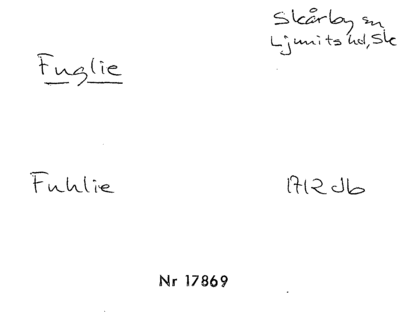 Skårby sn
Ljunits hd, Sk
Fuglie
Fuhlie 1712 Jb
Nr 17869